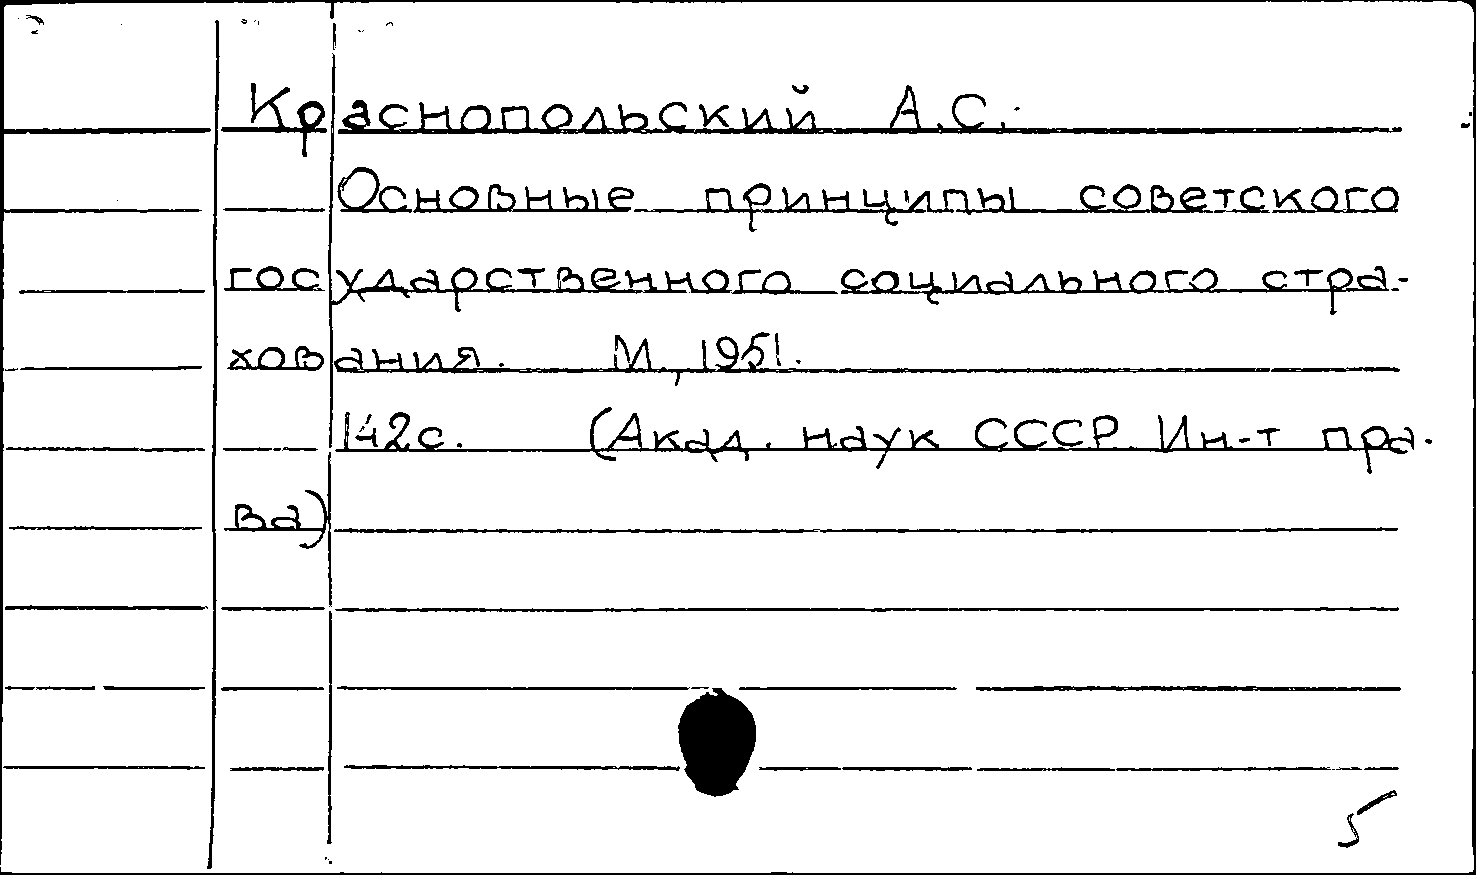 Краснопольский А.С.
Основные принципы советского
государственного социального стра-
хования. М., 1951.
142с. (Акад. наук СССР. Ин-т пра-
ва)
5